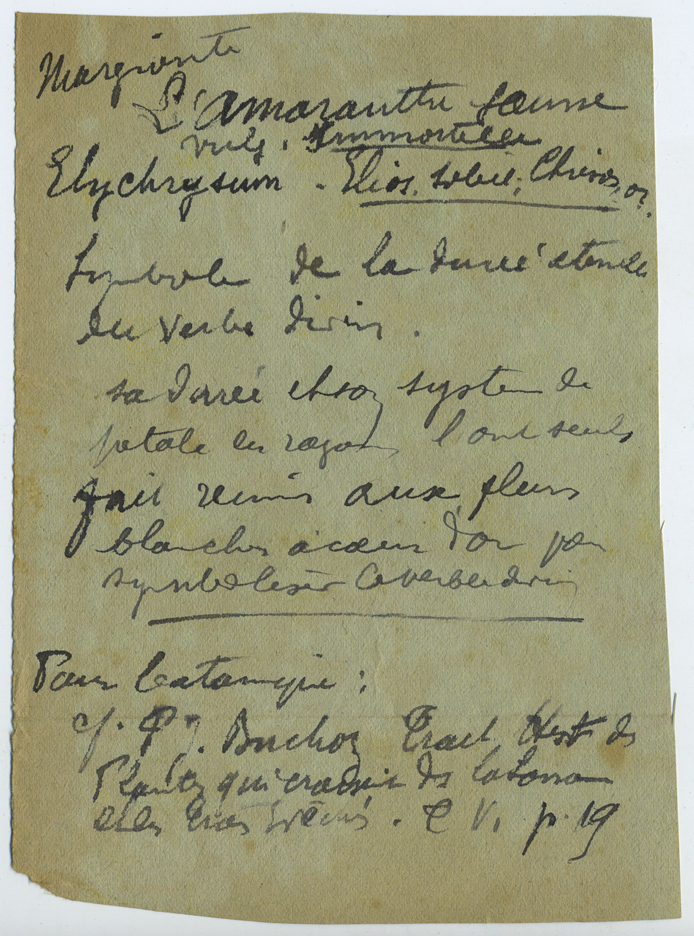 Marguerite
L'amaranthe Jaune
vulg. Immortelle
Elychrysum. Elios, soleil; Chrisos, or.
Symbole de la durée éternelle
du Verbe divin.
sa durée et son système de
petale en rayons l'ont seuls
fait reunir aux fleurs
blanches à coeur d'or pour
symboliser le verbe divin
Pour botanique :
cf. P. J. Buchoz Trait Hist des
Plantes qui croissent ds la Lorraine
et les Trois Evéchés. T V, p. 19